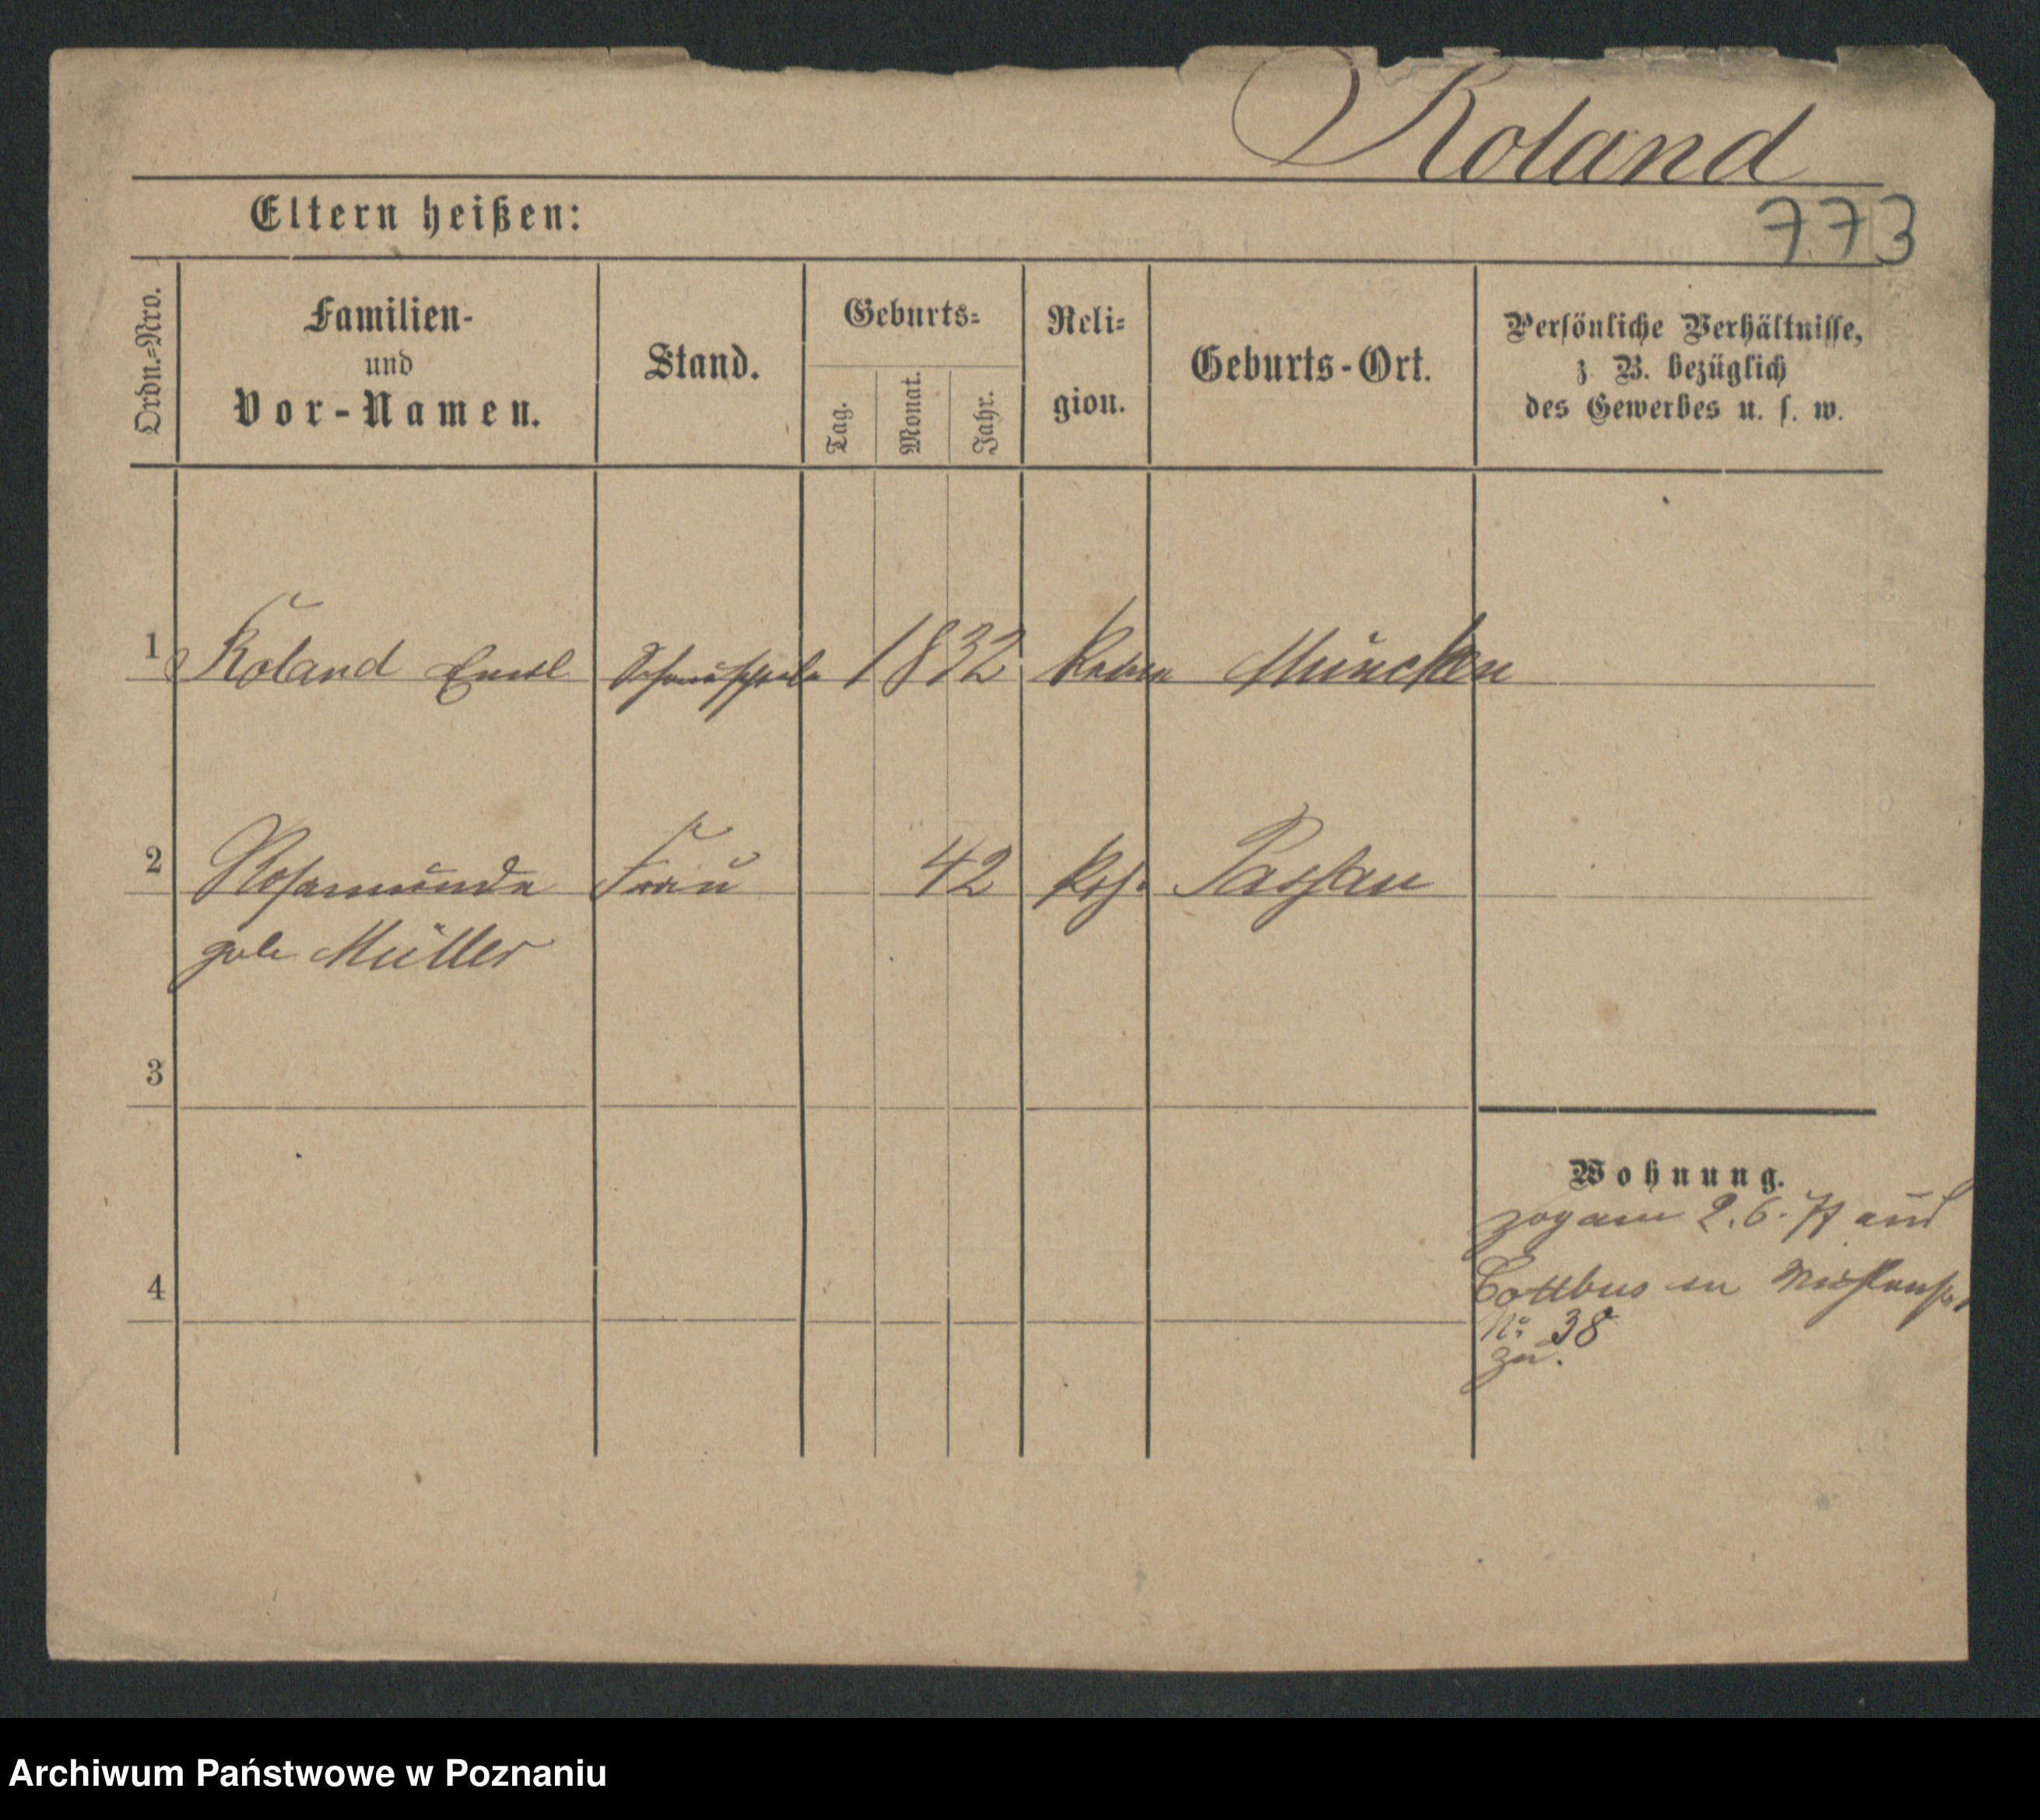 Roland
773
Eltern heißen:
Ordn.-Nro.
Familien-
und
Vor-Namen.
Stand.
Geburts-
Tag.
Monat.
Jahr.
Reli-
gion.
Geburts-Ort.
Persönliche Verhältnisse,
z. B. bezüglich
des Gewerbes u. s. w.
1 Roland 1832 München
2 Rosamunde Frau 42 Passau
geb Müller
3
Wohnung.
zog am 2. 6. 77 aus
4
Cottbus in
No 38
zu.
Archiwum Państwowe w Poznaniu